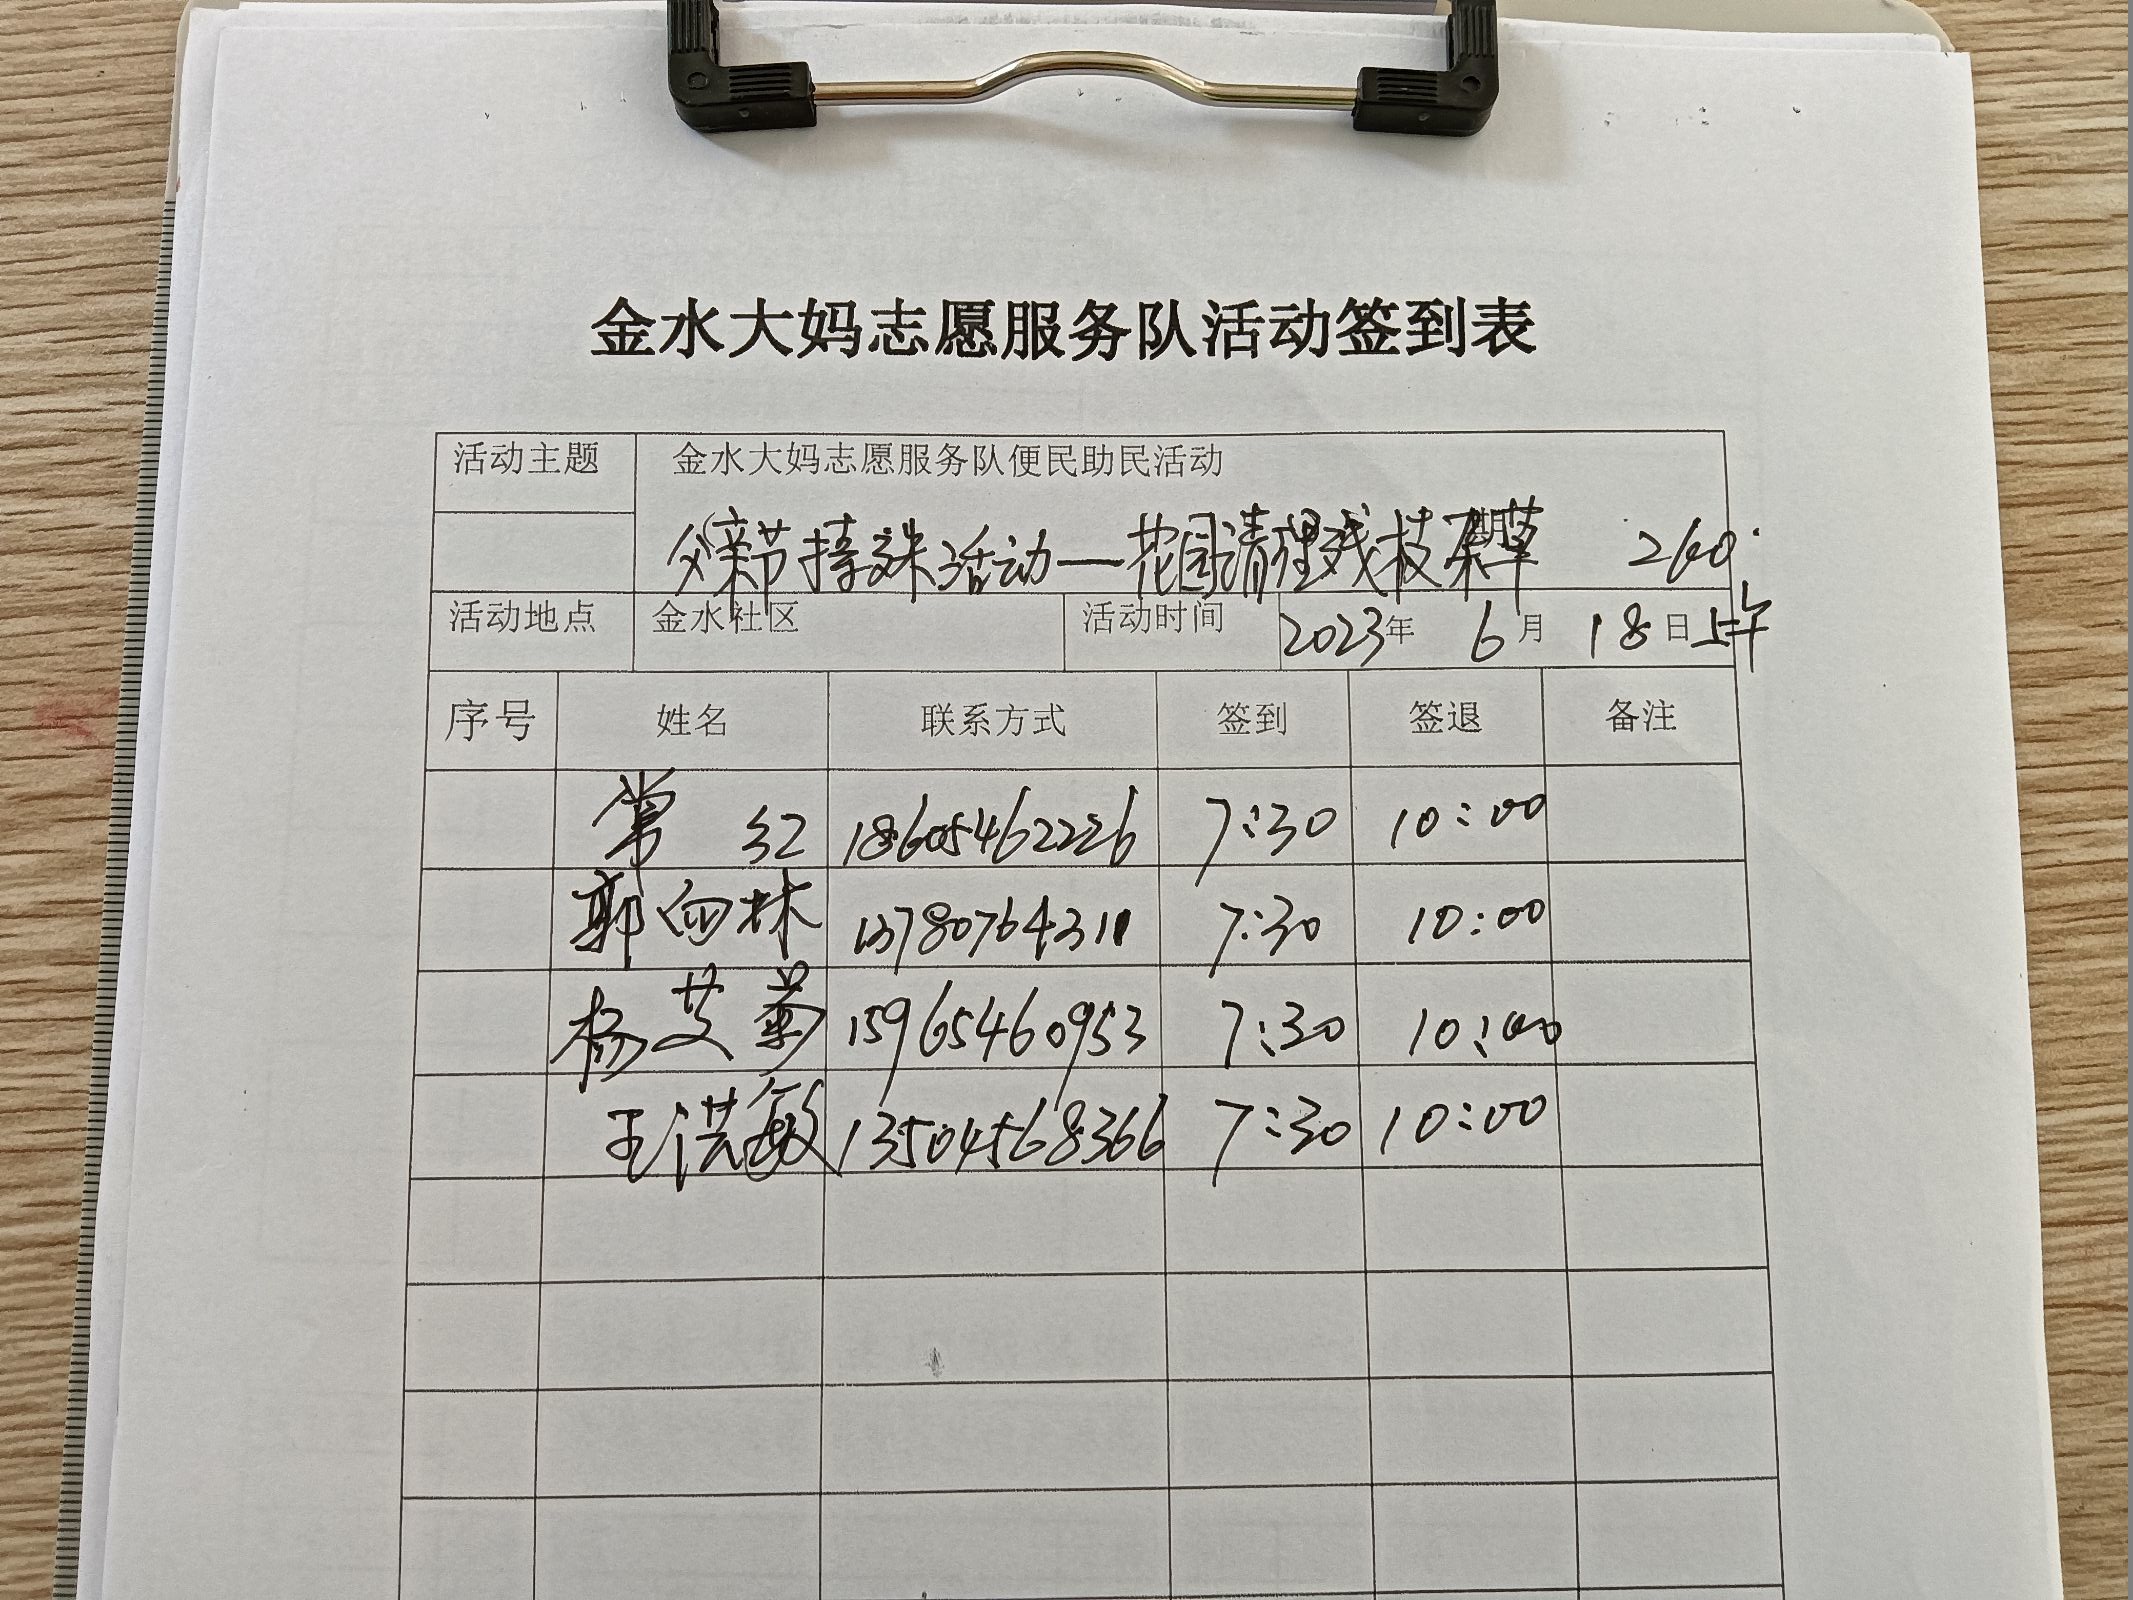 金水大妈志愿服务队活动签到表
活动主题 金水大妈志愿服务队便民助民活动
父亲节特殊活动—花园清理残枝杂草 260
活动地点 金水社区 活动时间 2023年 6月 18日上午
序号 姓名 联系方式 签到 签退 备注
常红 18605462226 7:30 10:00
郭向林 13780764311 7:30 10:00
杨艾菊 15965460953 7:30 10:00
王洪敏 13504568366 7:30 10:00